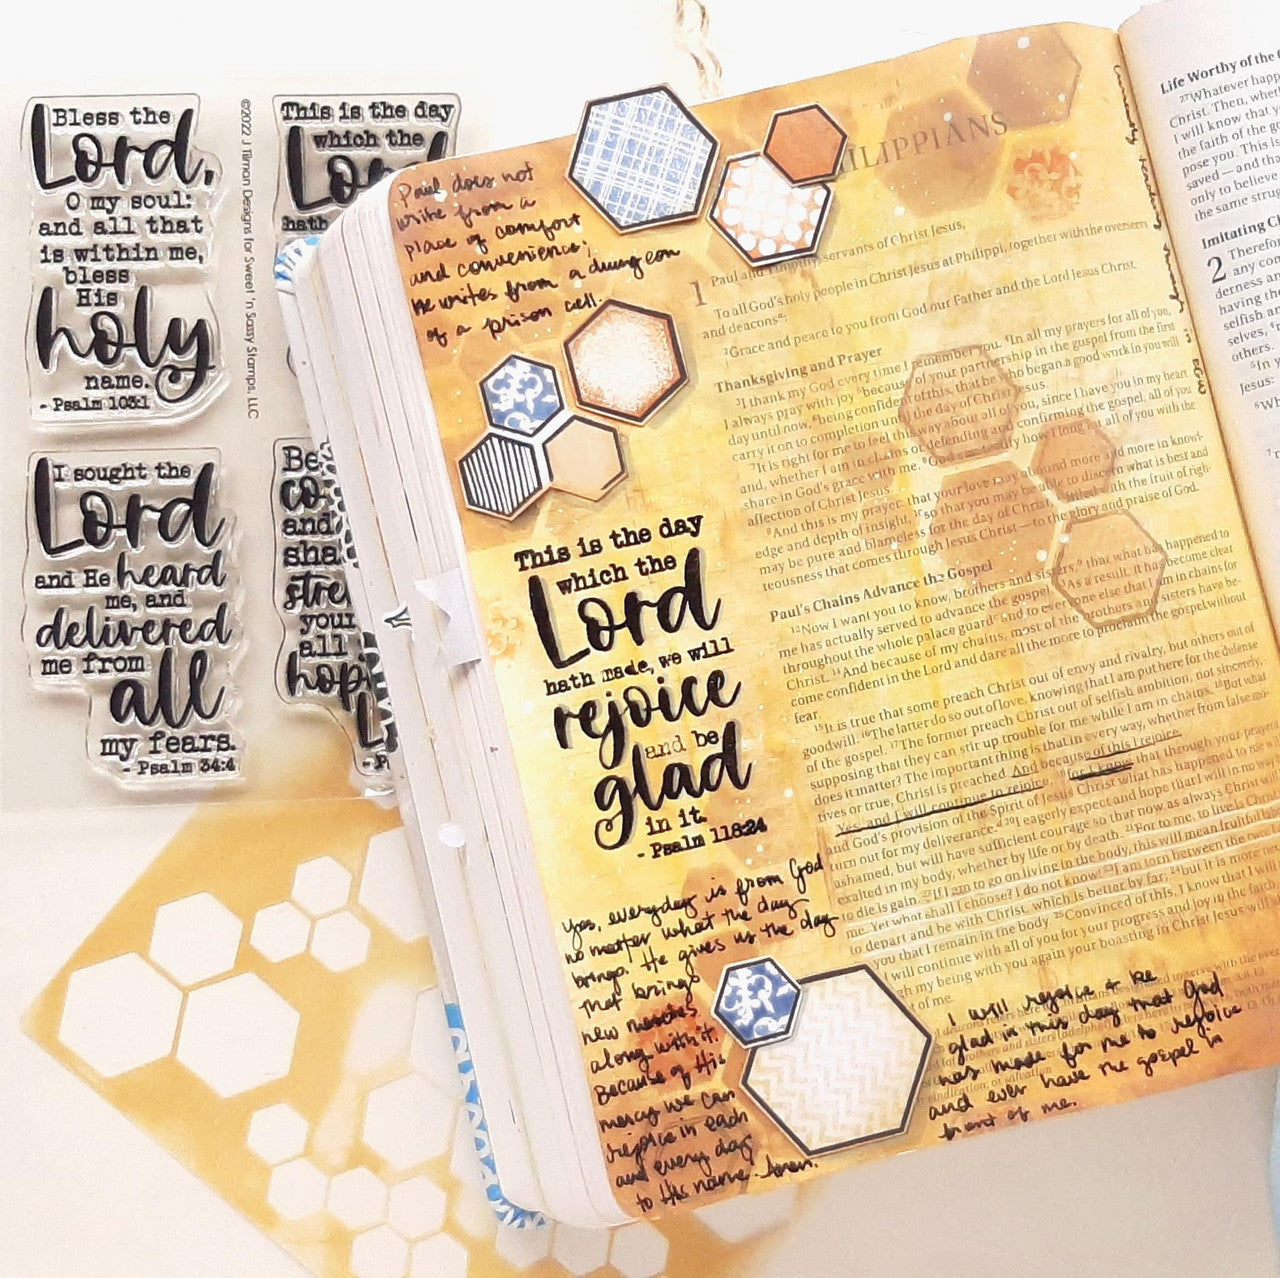 Bless the
Lord,
O my soul:
and all that
is within me,
bless
His
holy
name.
- Psalm 103:1
©2022 J Tilman Designs for Sweet 'n Sassy Stamps, LLC
This is the day
which the
hath
I sought the
Lord
and He heard
me, and
delivered
me from
all
my fears.
- Psalm 34:4
Be
and
your
all
Paul does not
write from a
place of comfort
and convenience;
he writes from a dungeon
of a prison cell.
This is the day
which the
Lord
hath made, we will
rejoice
and be
glad
in it.
- Psalm 118:24
Yes, everyday is from God
no matter what the day
brings. He gives us the day
that brings
new
along with it.
Because of His
mercy we can
rejoice in each
and every day
to His name
ILIPPIANS
1 Paul and Timothy, servants of Christ Jesus,
To all God's holy people in Christ Jesus at Philippi, together with the overseers
and deacons:
2Grace and peace to you from God our Father and the Lord Jesus Christ.
Thanksgiving and Prayer
3I thank my God every time I remember you. 4In all my prayers for all of you,
I always pray with joy 5because of your partnership in the gospel from the first
day until now, 6being confident of this, that he who began a good work in you will
carry it on to completion until the day of Christ Jesus.
7It is right for me to feel this way about all of you, since I have you in my heart
and, whether I am in chains or defending and confirming the gospel, all of you
share in God's grace with me. 8God can testify how I long for all of you with the
affection of Christ Jesus.
9And this is my prayer: that your love may abound more and more in knowl-
edge and depth of insight, 10so that you may be able to discern what is best and
may be pure and blameless for the day of Christ, 11filled with the fruit of righ-
teousness that comes through Jesus Christ—to the glory and praise of God.
Paul's Chains Advance the Gospel
12Now I want you to know, brothers and sisters, that what has happened to
me has actually served to advance the gospel. 13As a result, it has become clear
throughout the whole palace guard and to everyone else that I am in chains for
Christ. 14And because of my chains, most of the brothers and sisters have be-
come confident in the Lord and dare all the more to proclaim the gospel without
fear.
15It is true that some preach Christ out of envy and rivalry, but others out of
goodwill. 16The latter do so out of love, knowing that I am put here for the defense
of the gospel. 17The former preach Christ out of selfish ambition, not sincerely,
supposing that they can stir up trouble for me while I am in chains. 18But what
does it matter? The important thing is that in every way, whether from false mo-
tives or true, Christ is preached. And because of this I rejoice.
Yes, and I will continue to rejoice, 19for I know that through your prayers
and God's provision of the Spirit of Jesus Christ what has happened to me will
turn out for my deliverance. 20I eagerly expect and hope that I will in no way be
ashamed, but will have sufficient courage so that now as always Christ will be
exalted in my body, whether by life or by death. 21For to me, to live is Christ and
to die is gain. 22If I am to go on living in the body, this will mean fruitful labor
me. Yet what shall I choose? I do not know! 23I am torn between the two:
to depart and be with Christ, which is better by far; 24but it is more
you that I remain in the body. 25Convinced of this, I know that I will
I will continue with all of you for your progress and joy in the faith
my being with you again your boasting in Christ Jesus will
of me.
I will rejoice & be
glad in this day that God
has made for me to rejoice
and ever have the gospel in
front of me.
Life Worthy of the
27Whatever happ
Christ. Then, whet
I will know that y
the faith of the g
pose you. This is
saved—and that
only to believe
the same strug
Imitating C
2 Therefor
any com
derness an
having the
selfish a
selves,
others.
5In y
Jesus:
6Wh